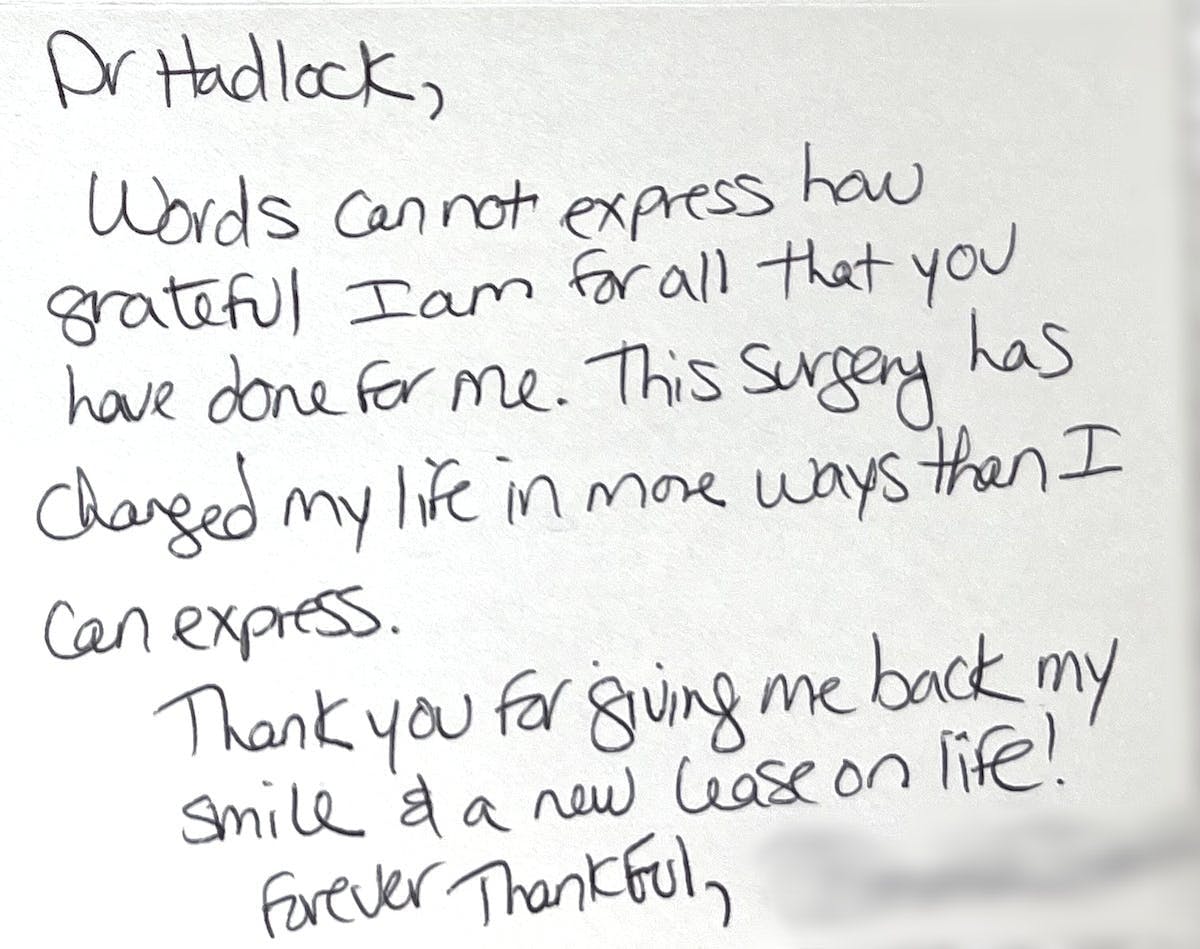 Dr Hadlock,
Words cannot express how
grateful I am for all that you
have done for me. This surgery has
changed my life in more ways than I
can express.
Thank you for giving me back my
smile & a new lease on life!
Forever Thankful,